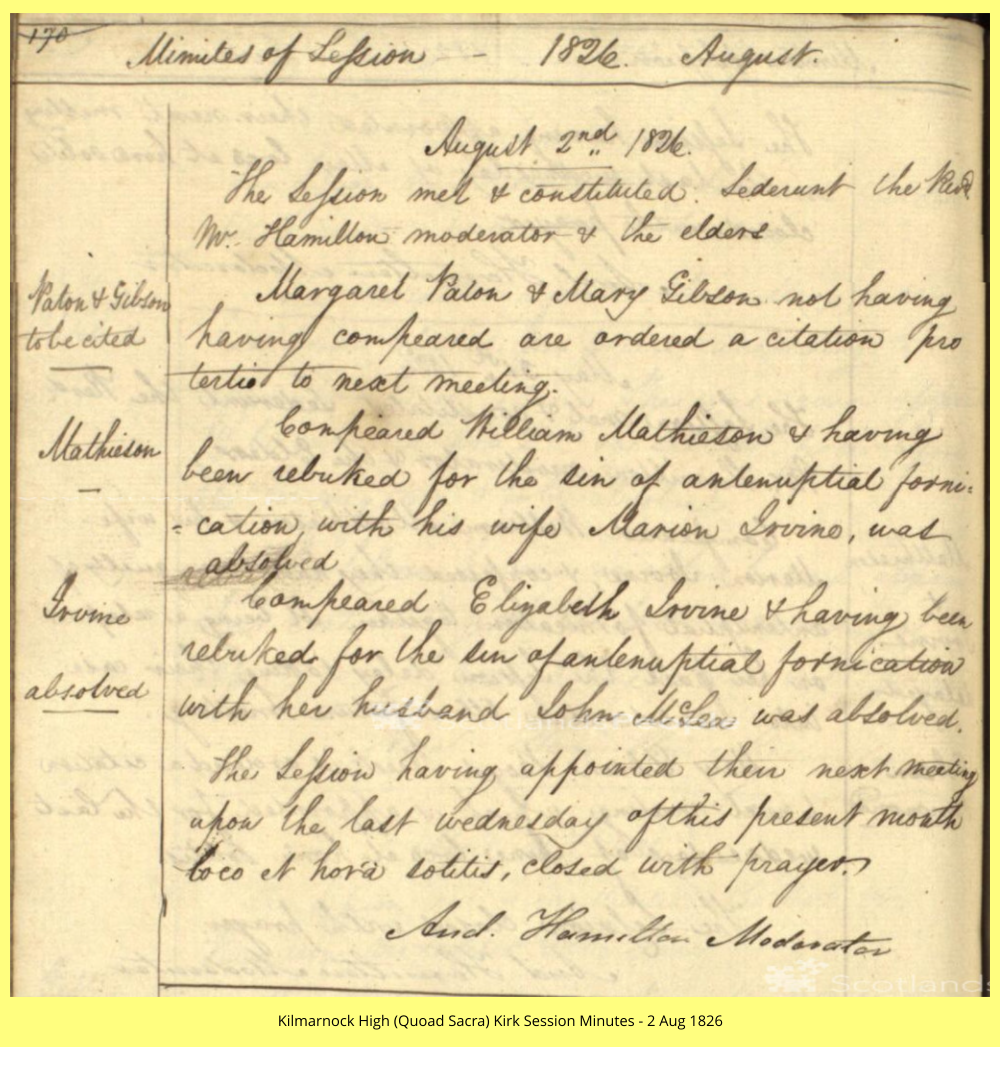 170
Minutes of Session - 1826. August.
August 2nd 1826.
The Session met & constituted. Sederunt the Revd
Mr. Hamilton moderator & the elders
Paton & Gibson
to be cited
Margaret Paton & Mary Gibson not having
having compeared are ordered a citation pro
tertio to next meeting.
Mathieson
Compeared William Mathieson & having
been rebuked for the sin of antenuptial forni-
-cation, with his wife Marion Irvine, was
absolved
Irvine
absolved
Compeared Elizabeth Irvine & having been
rebuked for the sin of antenuptial fornication
with her husband John McLea was absolved.
The Session having appointed their next meeting
upon the last wednesday of this present month
loco et horâ solitis, closed with prayer.
And. Hamilton Moderator
Scotlands
Kilmarnock High (Quoad Sacra) Kirk Session Minutes - 2 Aug 1826